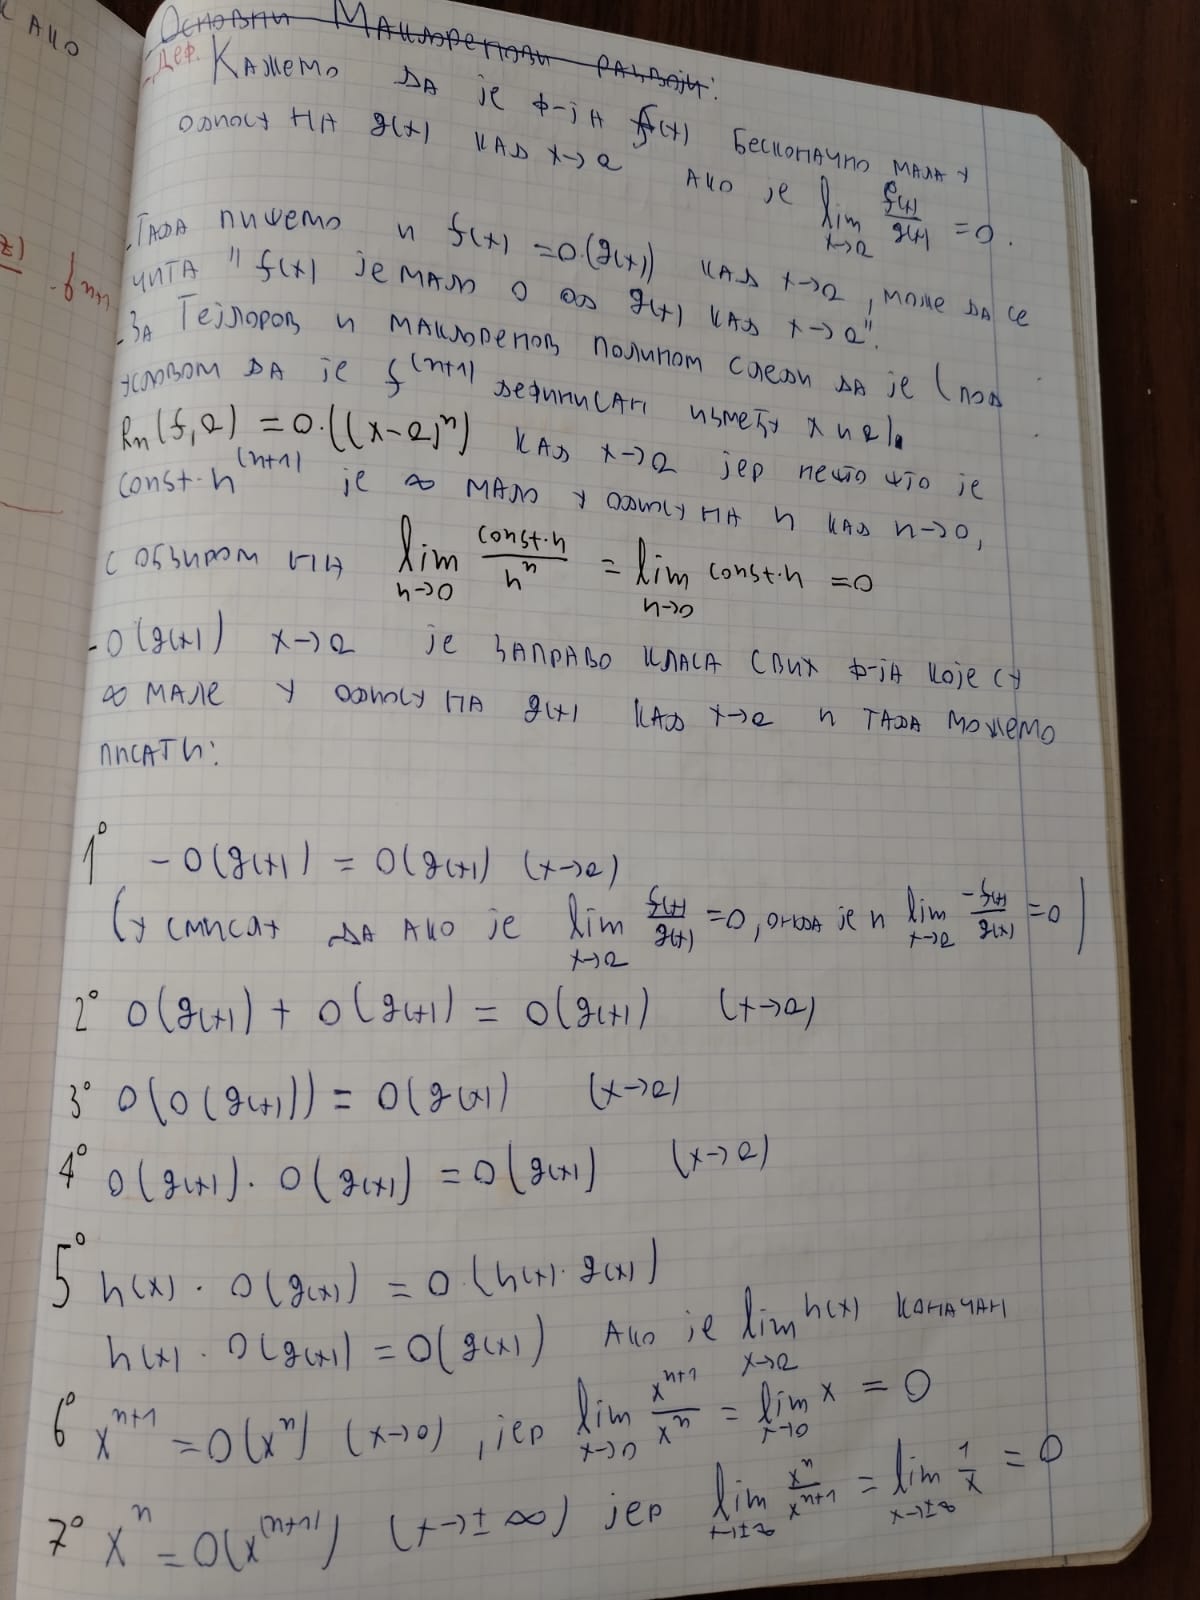 Ако
Основни Маклоренови развоји:
Деф. Кажемо да је ф-ја f(x) бесконачно мала у
односу на g(x) кад x→a ако је lim x→a f(x)/g(x) = 0.
-Тада пишемо и f(x) = o(g(x)) кад x→a, може да се
чита "f(x) је мало о од g(x) кад x→a".
-За Тејлоров и Маклоренов полином следи да је (под
условом да је f^(n+1) дефинисан између x и a).
Rn(f,a) = o·((x-a)^n) кад x→a јер нешто што је
const·h^(n+1) је ∞ мало у односу на h кад h→0,
с обзиром на lim h→0 const·h/h^n = lim h→0 const·h = 0
-o(g(x)) x→a је заправо класа свих ф-ја које су
∞ мале у односу на g(x) кад x→a и тада можемо
писати:
1° -o(g(x)) = o(g(x)) (x→a)
(у смислу да ако је lim x→a f(x)/g(x) = 0, онда је и lim x→a -f(x)/g(x) = 0)
2° o(g(x)) + o(g(x)) = o(g(x)) (x→a)
3° o(o(g(x))) = o(g(x)) (x→a)
4° o(g(x))·o(g(x)) = o(g(x)) (x→a)
5° h(x)·o(g(x)) = o·(h(x)·g(x))
h(x)·o(g(x)) = o(g(x)) ако је lim x→a h(x) коначан
6° x^(n+1) = o(x^n) (x→0), јер lim x→0 x^(n+1)/x^n = lim x→0 x = 0
7° x^n = o(x^(n+1)) (x→±∞) јер lim x→±∞ x^n/x^(n+1) = lim x→±∞ 1/x = 0